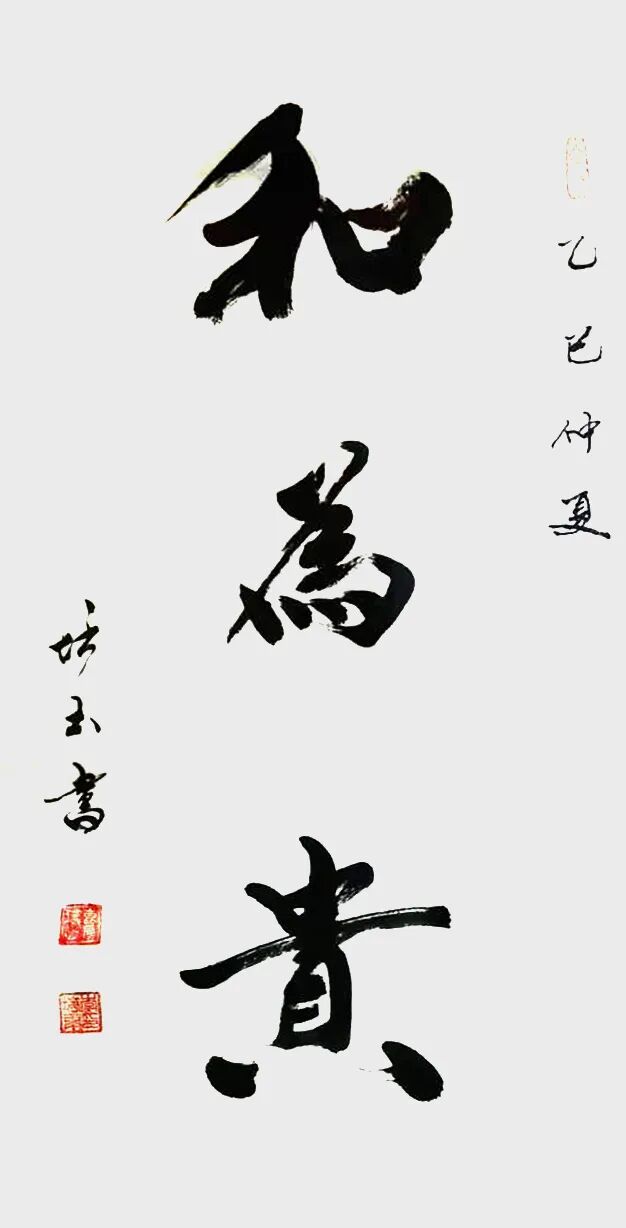 乙巳仲夏
和為貴
培玉書